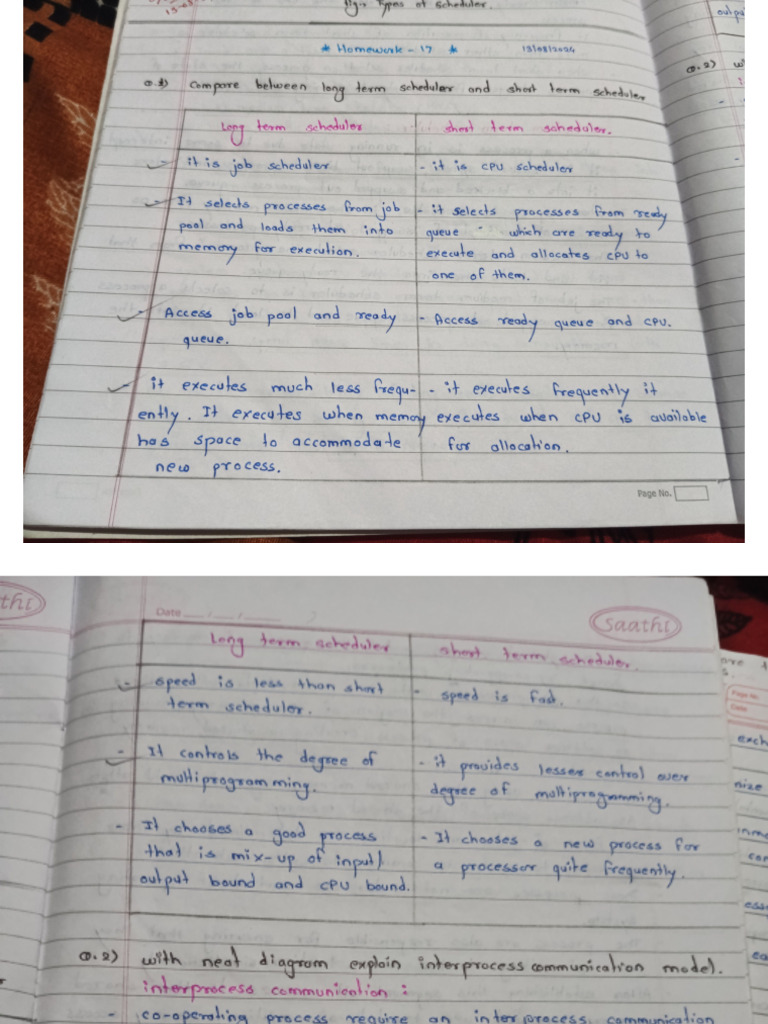 Fig:- Types of Scheduler.
* Homework - 17 * 13/08/2024
Q.1) Compare between long term scheduler and short term scheduler
Long term scheduler
short term scheduler.
it is job scheduler
- it is CPU scheduler
It selects processes from job
pool and loads them into
memory for execution.
- it selects processes from ready
queue which are ready to
execute and allocates CPU to
one of them.
Access job pool and ready
queue.
- Access ready queue and CPU.
it executes much less frequ-
ently. It executes when memory
has space to accommodate
new process.
- it executes frequently it
executes when CPU is available
for allocation.
Page No.
output
Q.2)
thi
Date
Saathi
Long term scheduler
short term scheduler.
- speed is less than short
term scheduler.
- speed is fast.
- It controls the degree of
multiprogramming.
- it provides lesser control over
degree of multiprogramming.
- It chooses a good process
that is mix-up of input/
output bound and CPU bound.
- It chooses a new process for
a processor quite frequently.
Q.2) with neat diagram explain interprocess communication model.
interprocess communication :
- co-operating process require an interprocess communication
Page No.
Date